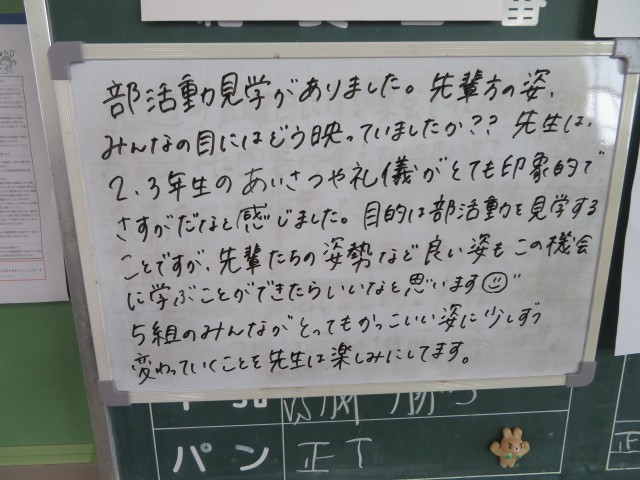 部活動見学がありました。先輩方の姿、
みんなの目にはどう映っていましたか?? 先生は、
2、3年生のあいさつや礼儀がとても印象的で
さすがだなと感じました。目的は部活動を見学する
ことですが、先輩たちの姿勢など良い姿もこの機会
に学ぶことができたらいいなと思います
5組のみんながとってもかっこいい姿に少しずつ
変わっていくことを先生は楽しみにしてます。
パン 正T